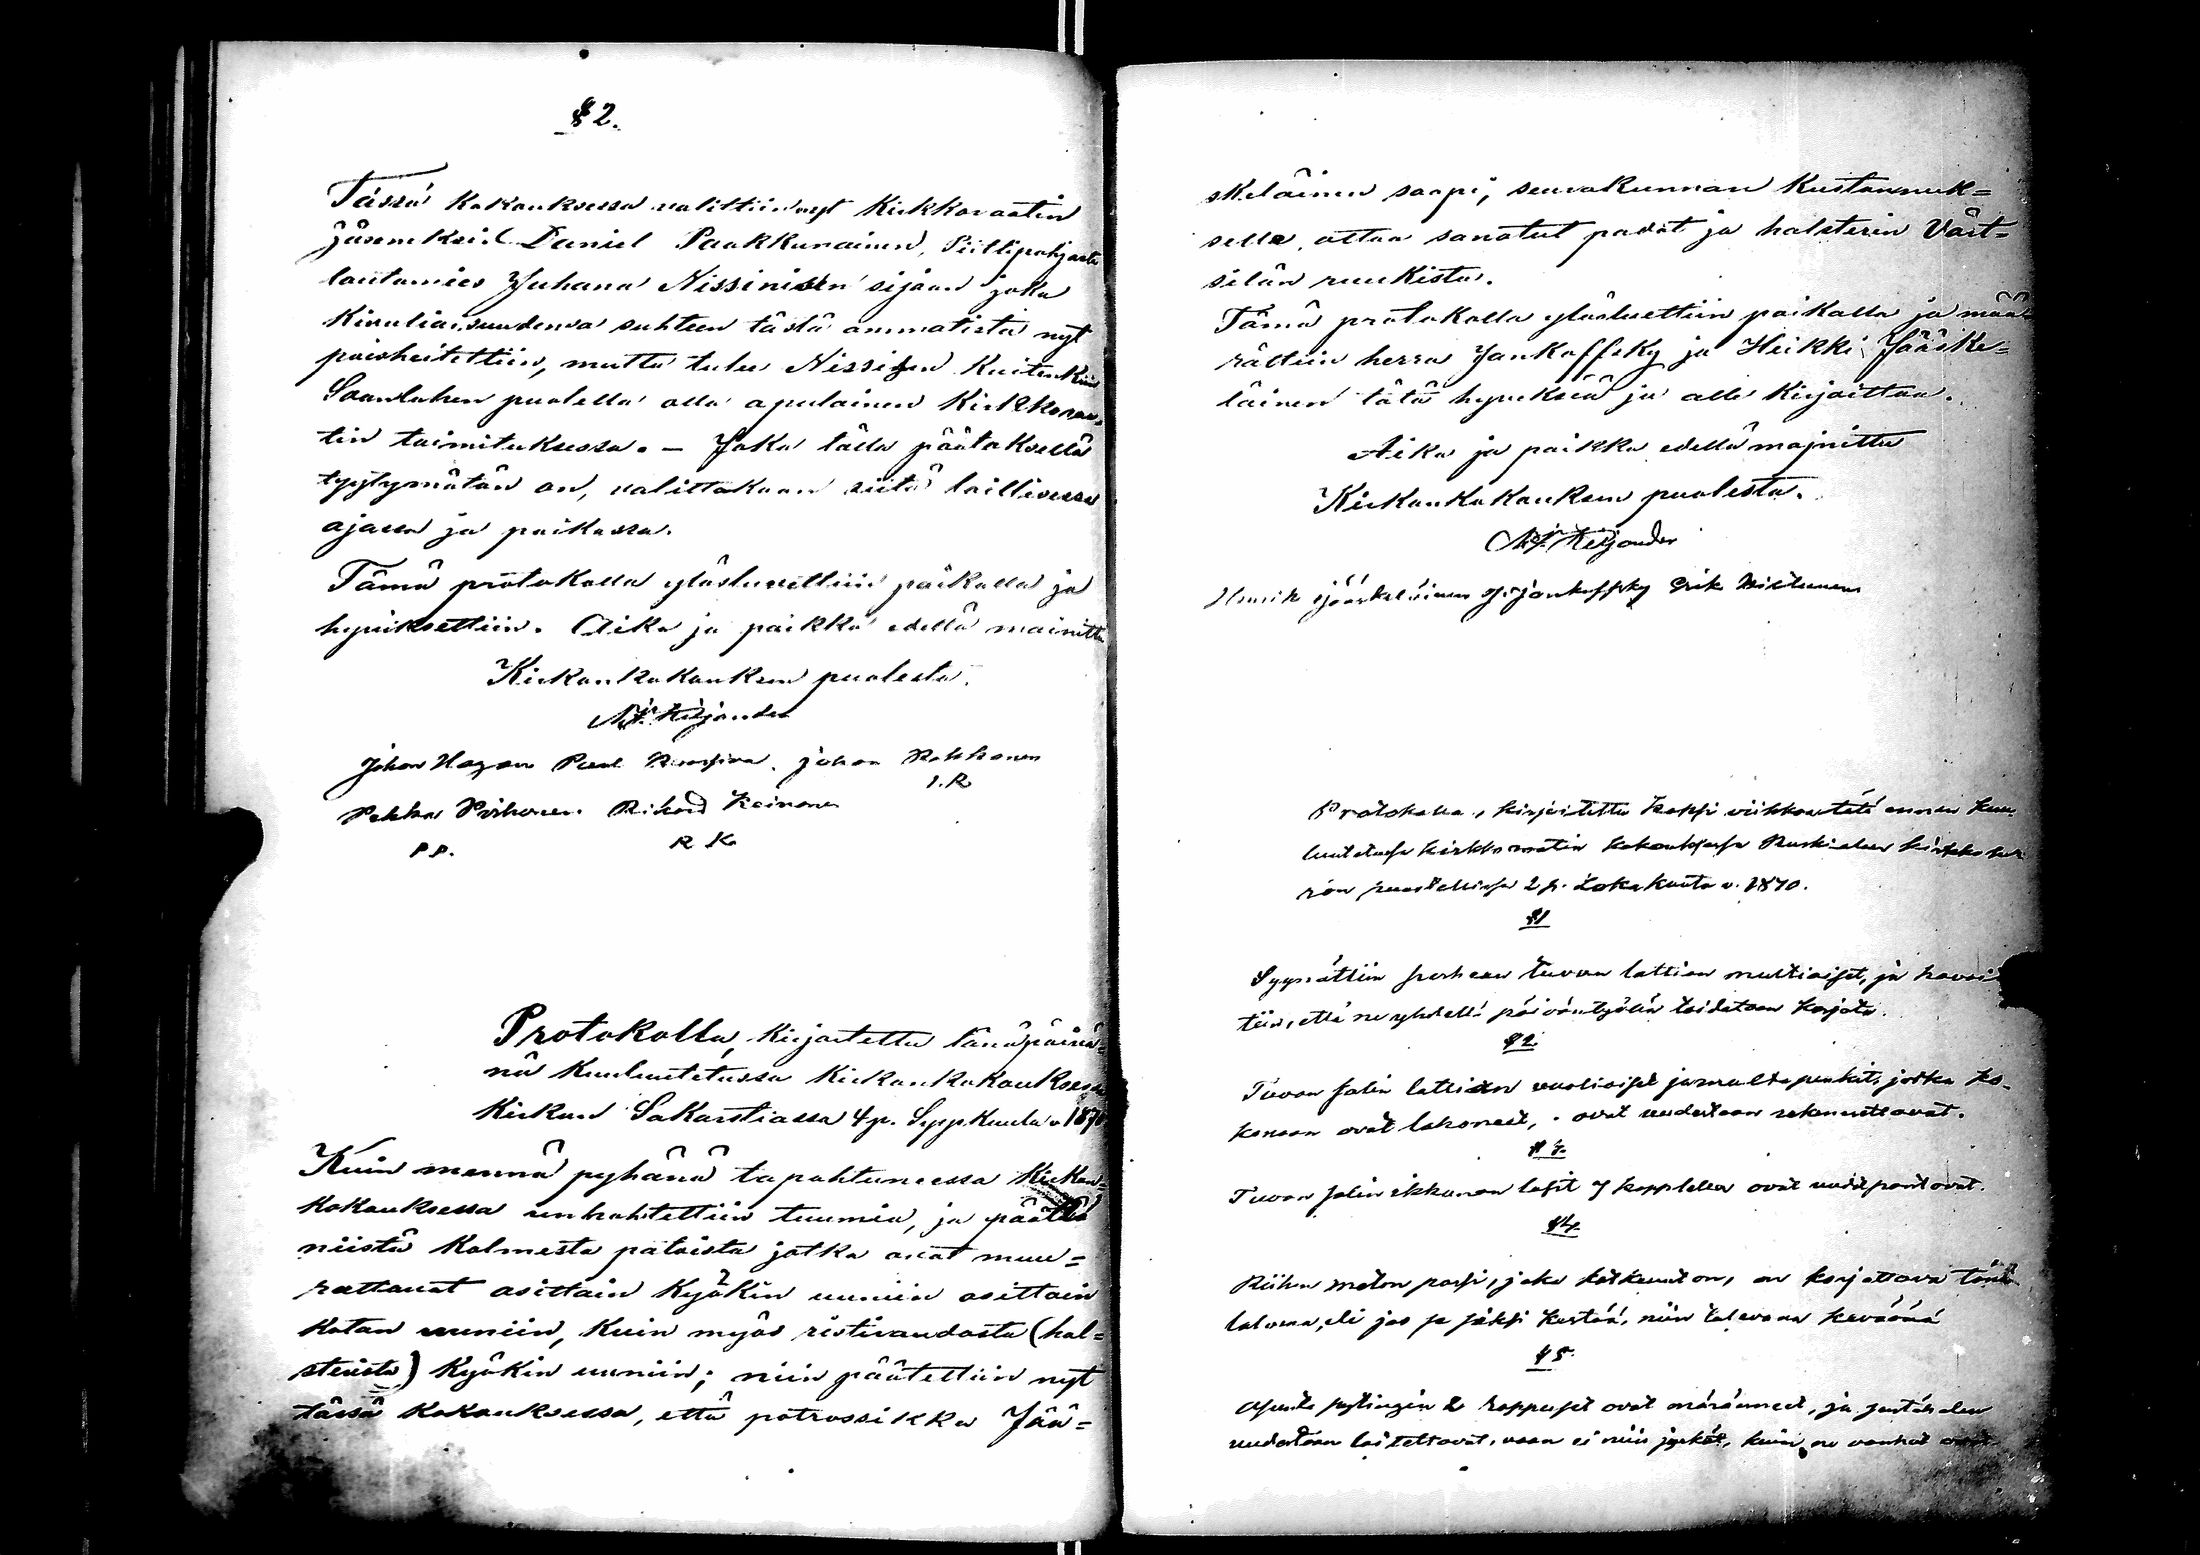 § 2.
Tässä kokouksessa valittiin nyt Kirkkoraatin
jäseneksi Daniel Paakkunainen, Piillipohjasta
lautamies Juhana Nissinisen sijaan joka
Kivuliaisuudensa suhteen tästä ammatista nyt
poisheitettiin, mutta tulee Nissisen Kuitenkin
Saanlahen puolella olla apulainen Kirkkoraa-
tin toimituksessa. — Joka tällä päätöksellä
tyytymätön on, valittakoon siitä laillisessa
ajassa ja paikassa.
Tämä protokolla ylösluettiin paikalla ja
hyväksettiin. Aika ja paikka edellä mainittu
Kirkonkokouksen puolesta.
Kiljander
Johan Paul johan Kokkonen
I.R
Pekka Pirhonen Rikard Keinonen
P P. R K
Protokolla, Kirjoitettu tänäpäivä-
nä Kuuluutetussa Kirkonkokouksessa
Kirkon Sakarstiassa 4 p. Syyskuuta v. 1870
Kuin mennä pyhänä tapahtuneessa Kirkon-
kokouksessa unhohtettiin tuumia, ja päättää
niistä Kolmesta patoista jotka ovat muu-
rattavat osittain Kyökin uuniin osittain
kotan uuniin, Kuin myös ristiraudasta (hal-
sterista) Kyökin uuniin; niin päätettiin nyt
tässä Kokouksessa, että potrossikka Jää-
skeläinen saapi, seurakunnan Kustannuk-
sella, ottaa sanotut padat ja halsterin Värt-
silän ruukista.
Tämä protokolla ylösluettiin paikalla ja mää-
rättiin herra Jankoffsky ja Heikki Jääske-
läinen tätä hyväksiä ja alle Kirjoittaa.
Aika ja paikka edellämajnittu
Kirkonkokouksen puolesta.
Kiljander
Henrik jääskeläinen Jankoffsky Erik
Protokolla, kirjoitettu kaksi viikkoa tätä ennen kuu-
luutetussa kirkkoraatin kokouksessa Ruskialan kirkkoher-
ran puustellissa 2 p. Lokakuuta v. 1870.
§ 1
Syynättiin perheen tuvan lattian multiaiset, ja havait-
tiin, että ne yhdellä päivän työllä taidetaan korjata.
§ 2.
Tuvan salin lattian vuoliaiset ja multapenkit, jotka ko-
konaan ovat lahoneet, ovat uudestaan rakennettavat.
§ 3.
Tuvan salin ikkunan lasit 7 kappaletta ovat uudet pantavat.
§ 4.
Riihen parsi, joka katkennut on, on korjattava tänä
talvena, eli jos se siksi kestää, niin tulevana keväänä
§ 5.
2 rappuset ovat märänneet, ja
uudestaan laitettavat, vaan ei niin jyrkät, kuin ne vanhat ovat.